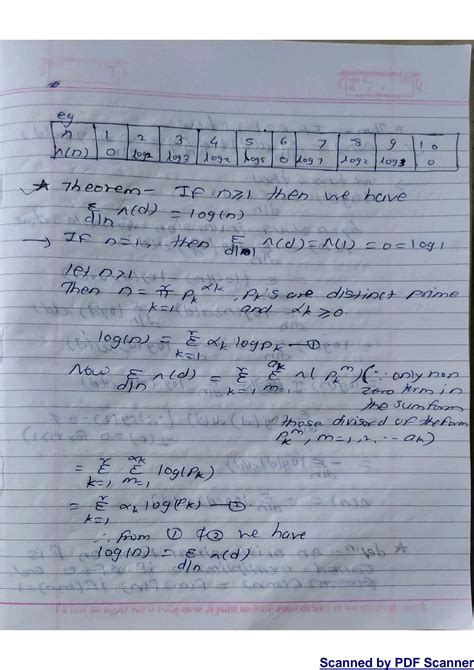 eg
n 1 2 3 4 5 6 7 8 9 10
Λ(n) 0 log2 log3 log2 log5 0 log7 log2 log3 0
* Theorem- If n≥1 then we have
Σ_{d|n} Λ(d) = log(n)
→ If n=1, then Σ_{d|1} Λ(d) = Λ(1) = 0 = log1
let n>1
Then n = π_{k=1}^{r} p_k^{αk}, pk's are distinct prime
and αk ≥0
∴ log(n) = Σ_{k=1}^{r} αk log pk —①
Now Σ_{d|n} Λ(d) = Σ_{k=1}^{r} Σ_{m=1}^{ak} Λ(p_k^m) (∵ only non
zero term in
the sum form
those divisod of the form
p_k^m, m=1,2,... ak)
= Σ_{k=1}^{r} Σ_{m=1}^{αk} log(pk)
= Σ_{k=1}^{r} αk log(pk) —②
∴ from ① & ② we have
log(n) = Σ_{d|n} Λ(d)
Scanned by PDF Scanner